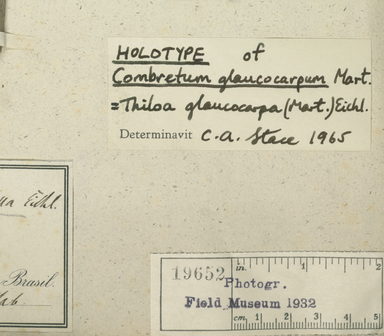 HOLOTYPE of
Combretum glaucocarpum Mart.
= Thiloa glaucocarpa (Mart.) Eichl.
Determinavit C.A. Stace 1965
Eichl.
Brasil.
19652
Photogr.
Field Museum 1932
in. 1 2
cm. 1 2 3 4 5